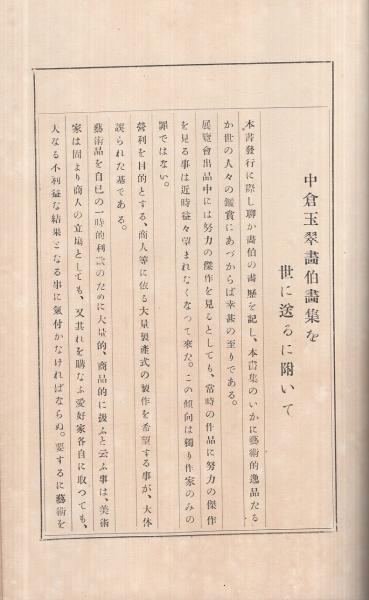 中倉玉翠畵伯畵集を
世に送るに附いて
本書發行に際し聊か畵伯の畵歷を記し、本書集のいかに藝術的逸品たる
か世の人々の鑑賞にあづからば幸甚の至りである。
展覽會出品中には努力の傑作を見るとしても、常時の作品に努力の傑作
を見る事は近時益々望まれなくなつて來た。この傾向は獨り作家のみの
罪ではない。
營利を目的とする、商人等に依る大量製產式の製作を希望する事が、大体
誤られた基である。
藝術品を自己の一時的利慾のために大量的、商品的に扱ふと云ふ事は、美術
家は固より商人の立塲としても、又其れを購なふ愛好家各自に取つても、
大なる不利益な結果となる事に氣付かなければならぬ。要するに藝術を